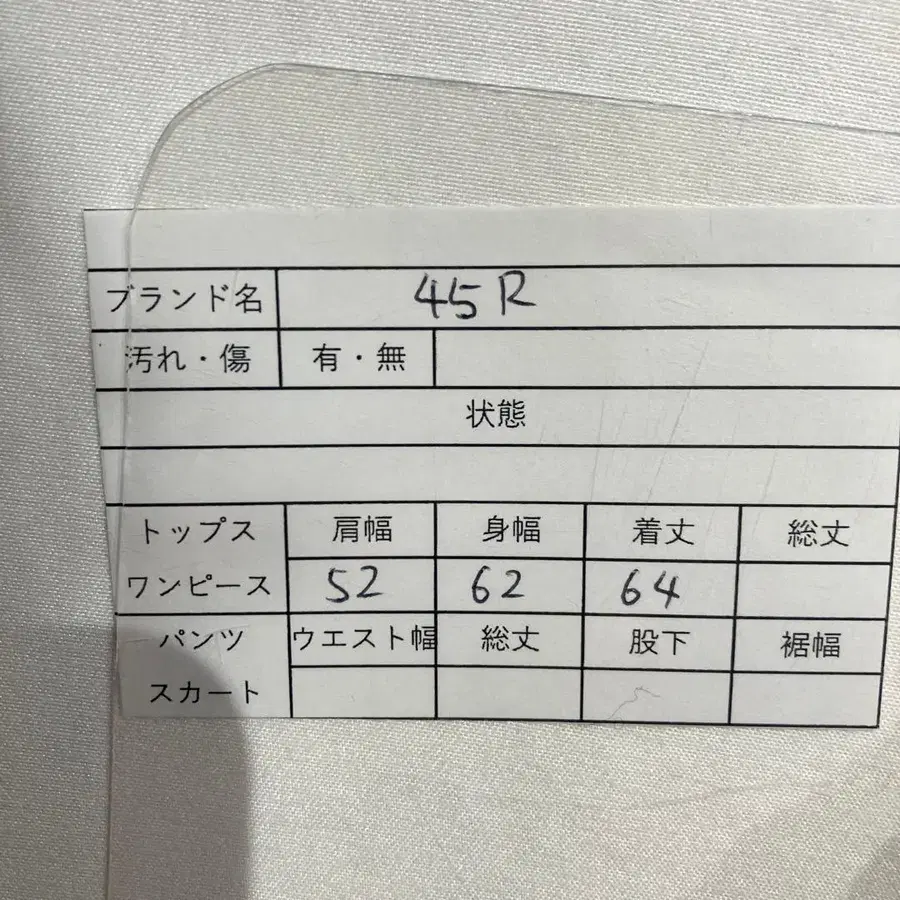 ブランド名 45R
汚れ・傷 有・無
状態
トップス 肩幅 身幅 着丈 総丈
ワンピース 52 62 64
パンツ ウエスト幅 総丈 股下 裾幅
スカート